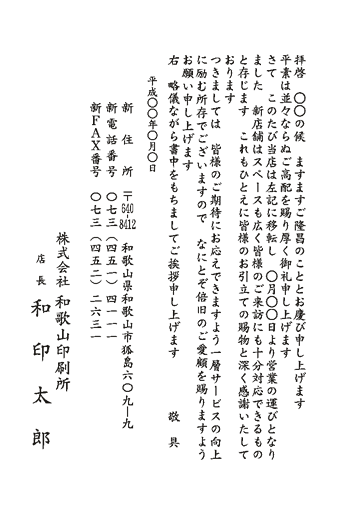 拝啓　〇〇の候　ますますご隆昌のこととお慶び申し上げます
平素は並々ならぬご高配を賜り厚く御礼申し上げます
さて　このたび当店は左記に移転し　〇月〇〇日より営業の運びとなり
ました　新店舗はスペースも広く皆様のご来訪にも十分対応できるもの
と存じます　これもひとえに皆様のお引立ての賜物と深く感謝いたして
おります
つきましては　皆様のご期待にお応えできますよう一層サービスの向上
に励む所存でございますので　なにとぞ倍旧のご愛顧を賜りますよう
お願い申し上げます
右　略儀ながら書中をもちましてご挨拶申し上げます　　敬　具
平成〇〇年〇月〇日
新　住　所　〒640-8412　和歌山県和歌山市狐島六〇九—九
新電話番号　〇七三（四五一）四一一一
新ＦＡＸ番号　〇七三（四五二）二六三一
株式会社　和歌山印刷所
店長　和　印　太　郎